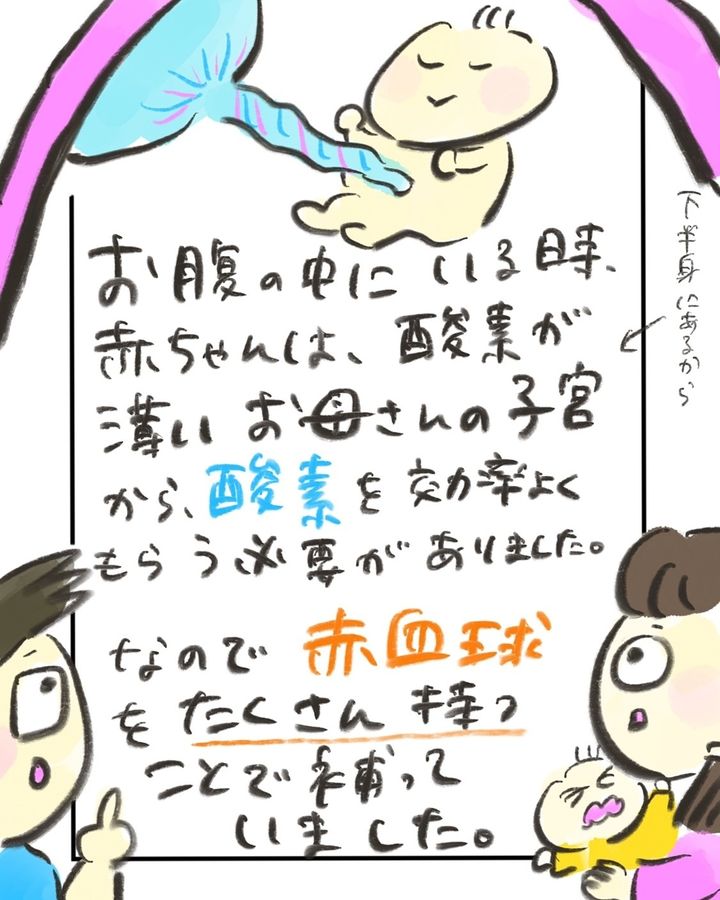 お腹の中にいる時、
赤ちゃんは、酸素が
薄いお母さんの子宮
から、酸素を効率よく
もらう必要がありました。
なので赤血球
をたくさん持つ
ことで補って
いました。
下半身にあるから